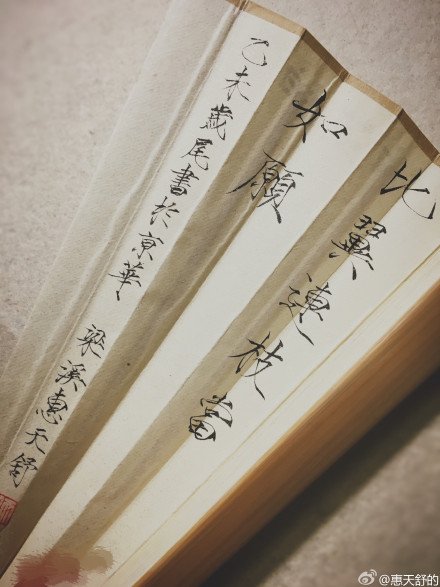 比翼連枝當
如願
乙未歲尾書於京華 梁溪惠天舒
@惠天舒的